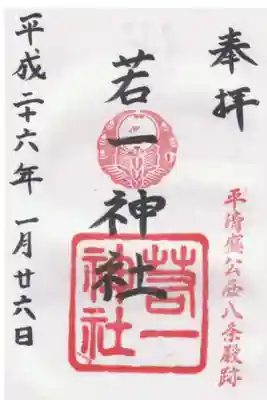 奉拝
平清盛公西八条殿跡
若一神社
若一神社
平成二十六年一月廿六日